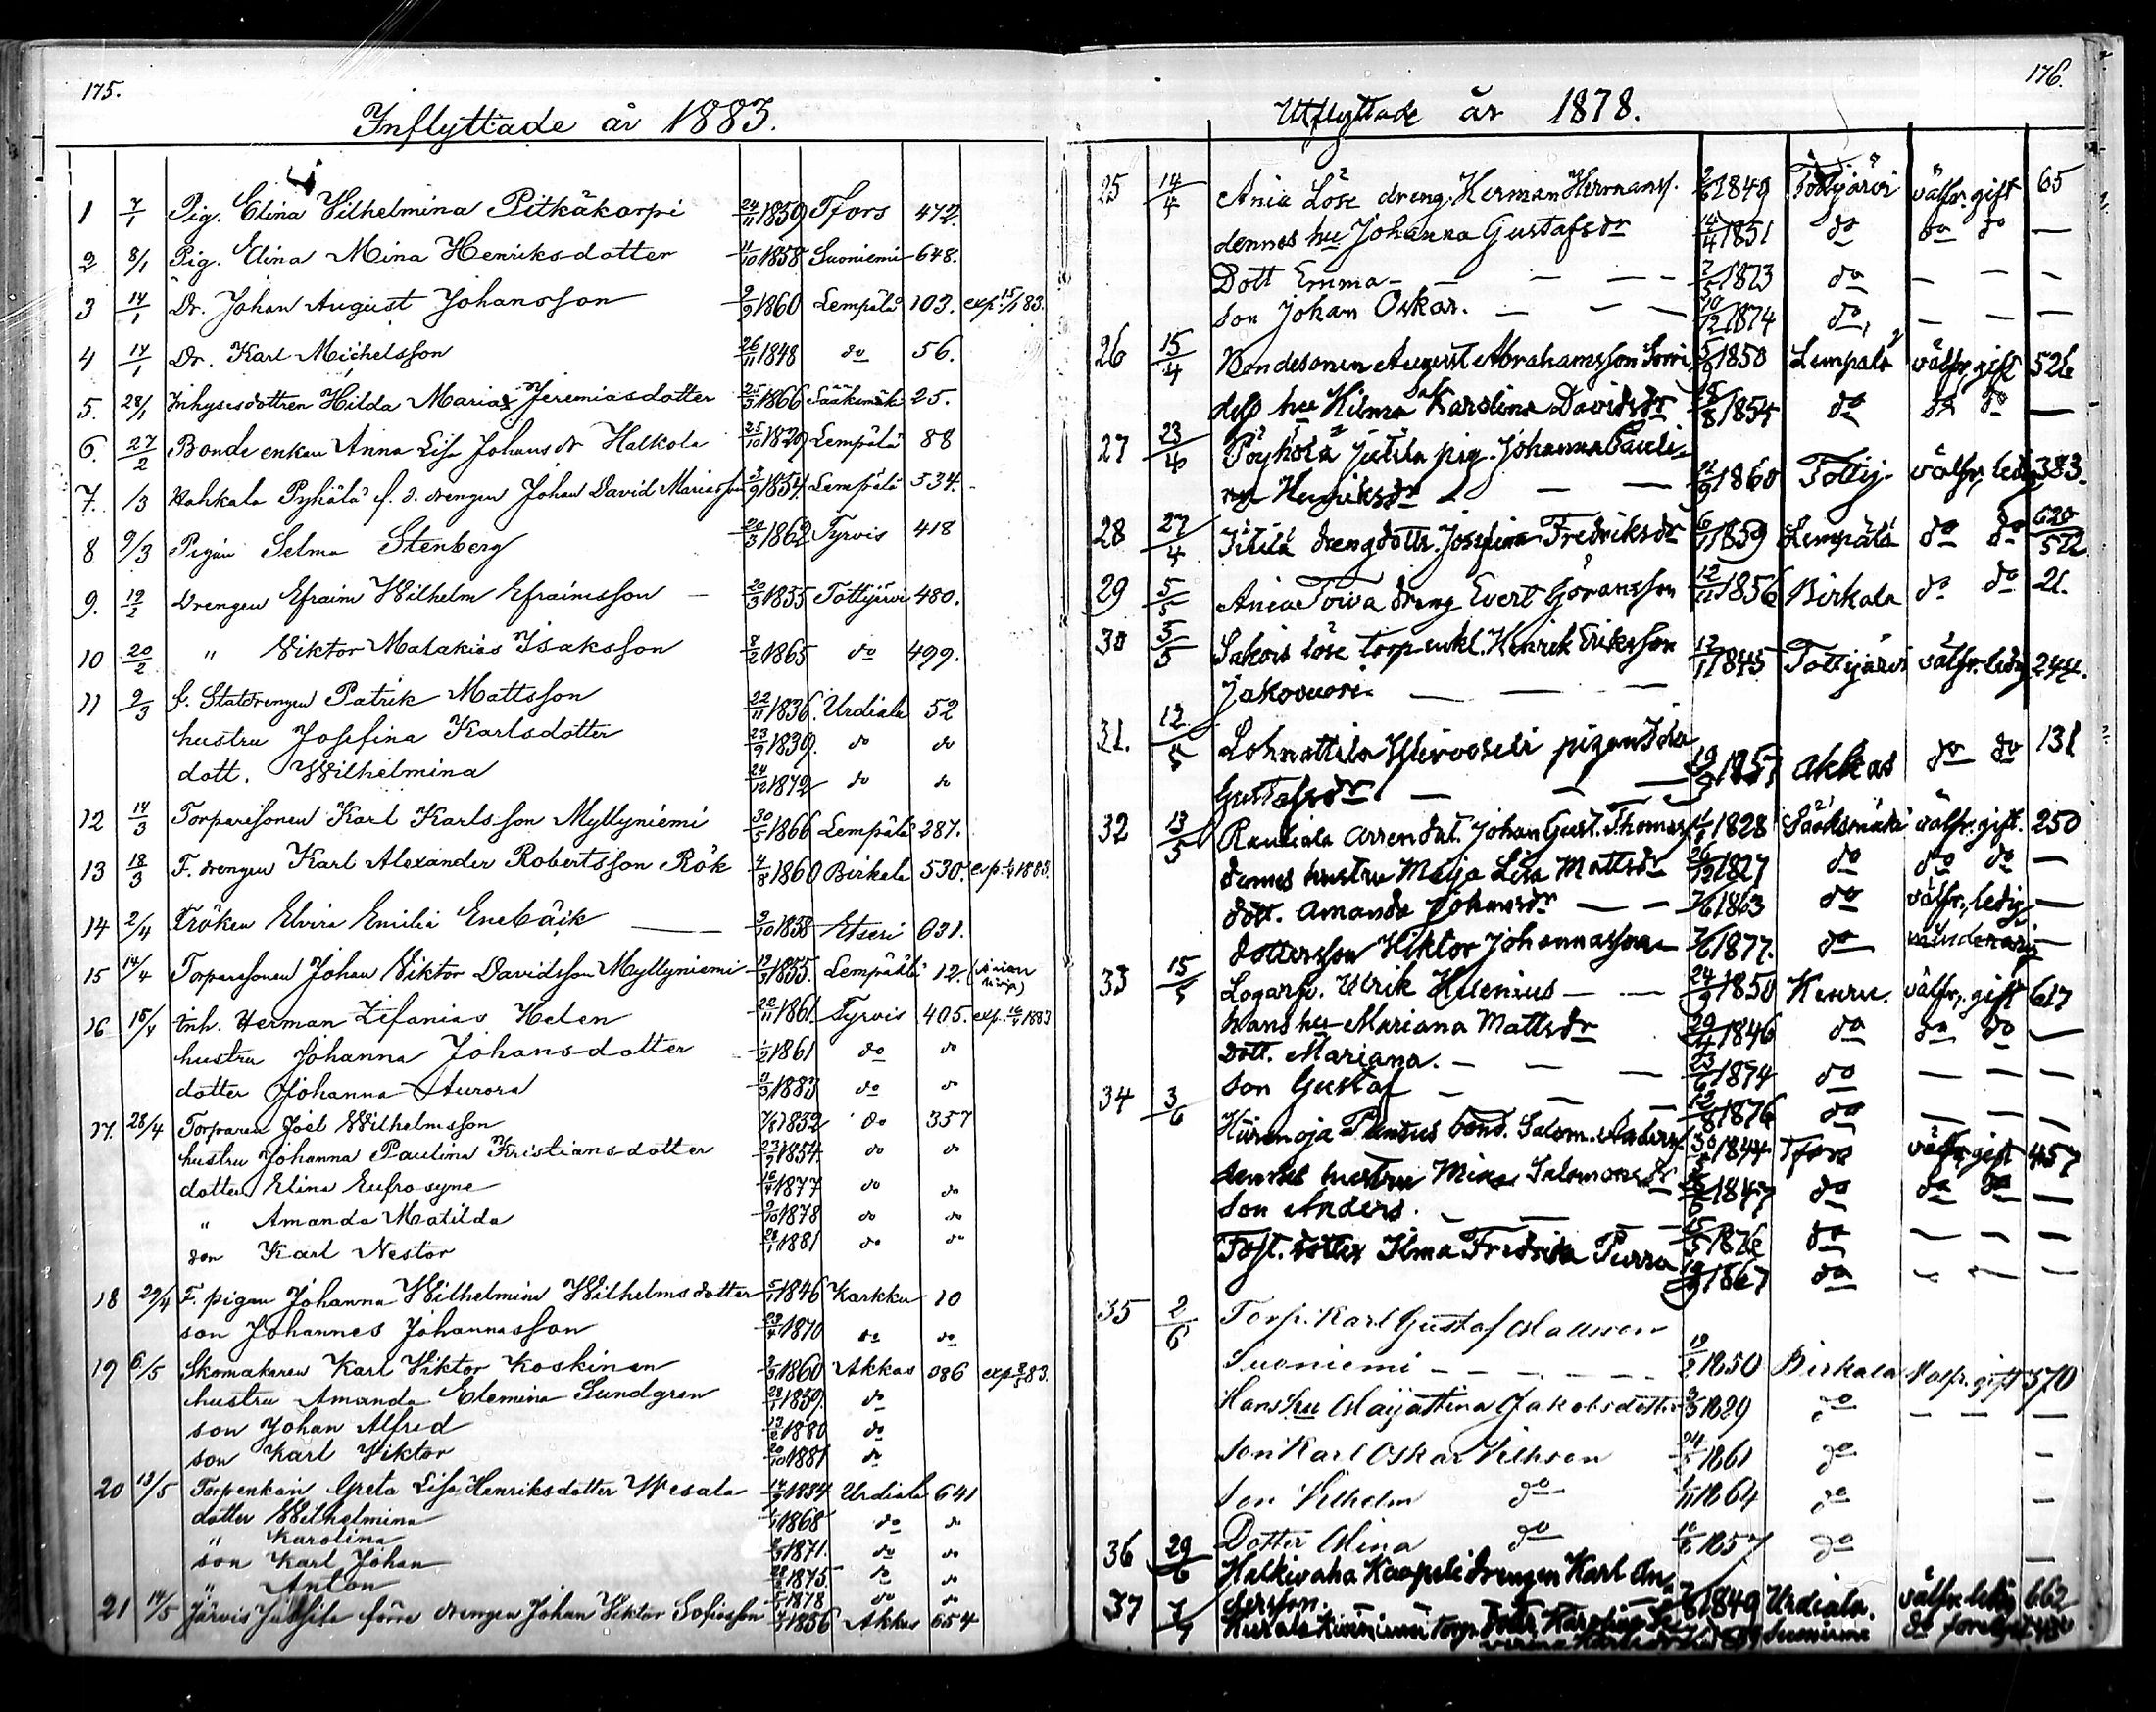 175.
Inflyttade år 1883.
1 7/1 Pig. Elina Vilhelmina Pitkäkorpi 24/11 1859 Tfors 472.
2 8/1 Pig. Elina Mina Henriksdotter 11/10 1858 Suoniemi 648.
3 14/1 Dr. Johan August Johansson 9/9 1860 Lempälä 103. exp. 15/1 83.
4 14/1 Dr. Karl Michelsson 26/11 1848 do 56.
5. 28/1 Inhysesdottren Hilda Maria Jeremiasdotter 25/3 1866 Sääksmäki 25.
6. 27/2 Bonde enkan Anna Lisa Johansdr Halkola 25/10 1829 Lempälä 88
7. 1/3 Hahkala Pyhälä f. d. drengen Johan David Mariasson 3/9 1854 Lempälä 534.
8 9/3 Pigan Selma Stenberg 20/3 1862 Tyrvis 418
9. 19/2 Drengen Efraim Wilhelm Efraimsson 20/3 1855 Tottijärvi 480.
10 20/2 " Viktor Malakias Isaksson 8/2 1865 do 499.
11 9/3 f. Statdrengen Patrik Mattsson 22/11 1836. Urdiala 52
hustru Josefina Karlsdotter 23/9 1839. do do
dott. Wilhelmina 24/12 1872 do do
12 14/3 Torparesonen Karl Karlsson Myllyniemi 30/5 1866 Lempälä 287.
13 18/3 F. drengen Karl Alexander Robertsson Rök 4/8 1860 Birkala 530. exp. 1/4 1883.
14 2/4 Fröken Elvira Emilia Enebäck 3/10 1858 Etseri 631.
15 14/4 Torparesonen Johan Viktor Davidsson Myllyniemi 19/3 1855. Lempäälä 12.
16 15/4 Inh. Herman Zifanias Helen 22/11 1861. Tyrvis 405. exp. 16/4 1883
hustru Johanna Johansdotter 1/2 1861 do do
dotter Johanna Aurora 11/3 1883 do do
17. 28/4 Torparen Joel Wilhelmsson 1852 do 357
hustru Johanna Paulina Kristiansdotter 23/7 1854. do do
dotter Elina Eufrosyne 16/4 1877 do do
" Amanda Matilda 9/10 1878 do do
son Karl Nestor 26/1 1881 do do
18 29/4 F. pigan Johanna Wilhelmina Wilhelmsdotter 5/1 1846 Karkku 10
son Johannes Johannasson 23/4 1870 do do
19 6/5 Skomakaren Karl Viktor Koskinen 1860 Akkas 386 exp 83.
hustru Amanda Elemina Sundgren 28/1 1859. do
son Johan Alfred 19/2 1880 do
son Karl Viktor 20/10 1881 do
20 13/5 Torpenkan Greta Lisa Henriksdotter Wesala 14/9 1834 Urdiala 641
dotter Wilhelmina 1868 do do
" Karolina 1871. do do
son Karl Johan 1875. do do
" Anton 1878 do do
21 14/5 Järvis förre drengen Johan Viktor Sofiasson 1856 Akkas 654
176.
Utflyttade år 1878.
25 14/4 Ania Löse dreng. Herman Hermanss. 1849 Tottijärvi välfr. gift 65
dennes hu Johanna Gustafsdr 14/4 1851 do do do —
Dott Emma 7/5 1873 do — — —
son Johan Oskar. 30/12 1874 do, — — —
26 15/4 Bondesonen August Abrahamsson 1850 Lempälä välfr. gift 526
dess hu Hilma Karolina Davidsdr 15/8 1854 do do do —
27 23/4 Pöyhölä Jutila pig. Johanna Pauli-
na Henriksdr 1860 Tottij. välfr. ledig 383.
28 27/4 Jutila drengdottr. Josefina Fredriksdr 6/11 1859 Lempälä do do 620/522
29 5/5 Ania Toiva dreng Evert Göransson 12/11 1856 Birkala do do 21.
30 5/5 Sakois löse torp enkl. Henrik Eriksson 12/11 1845 Tottijärvi välfr. ledig 244.
Jakovuori.
31. 12/5 Lohnottila pigan Ida
Gustafsdr 19/9 1857 Akkas do do 131
32 13/5 Rautiala arrendat. Johan Gust. Thomass 1828 Sääksmäki välfr. gift. 250
dennes hustru Maja Lisa Mattsdr 26/12 1827 do do do —
dott. Amanda Johansdr 1863 do välfr., ledig —
dotterson Viktor Johannasson 1877. do minderårig —
33 15/5 Logarf. Ulrik Husenius 24/9 1850 Keuru. välfr. gift 617
hans hu Mariana Mattsdr 29/4 1846 do do do —
dott. Mariana. 23/6 1874 do — — —
son Gustaf 12/8 1876 do — — —
34 3/6 Hürenoja Puntus bond. Salom. Anderss. 30 1844 Tfors välfr. gift 457
dennes hustru Mina Salomonsdr 1847 do do do —
son Anders. 15/5 1876 do — — —
Fost. dotter Ilma Fredrika Purra 19/9 1867 do — — —
35 2/6 Torp. Karl Gustaf Mattsson
Suoniemi 19/2 1850 Birkala Välfr. gift 370
Hans hu Maijastina Jakobsdotter 1829 do — — —
Son Karl Oskar Vilhson 24/5 1861 do —
Son Vilhelm do 1/11 1864 do —
Dotter Mina do 1857 do —
36 29/6 Halkivaha Kaapeli drengen Karl An-
dersson. 1849 Urdiala. välfr. ledig 662
37 7/7 Kurala Kinnianni torp. dottr. Karolina Se-
verina Karlsdr Suoniemi do